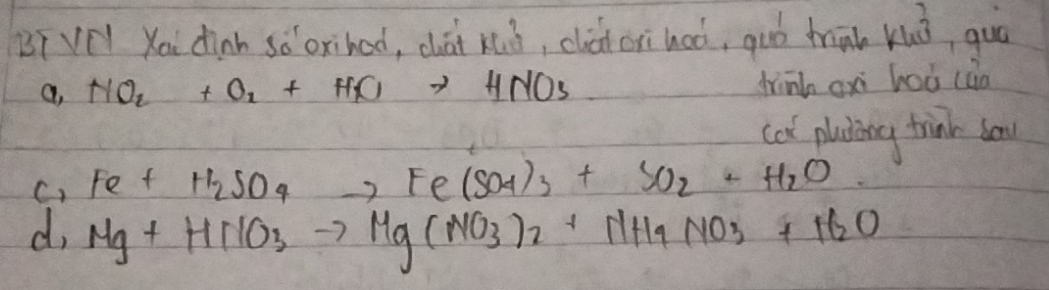 BTVN Xác định số oxi hoá, chất khử, chất oxi hoá, quá trình khử, quá
trình oxi hoá của
các phương trình sau
a, NO2 + O2 + H2O → HNO3
c, Fe + H2SO4 → Fe(SO4)3 + SO2 + H2O.
d, Mg + HNO3 → Mg(NO3)2 + NH4NO3 + H2O